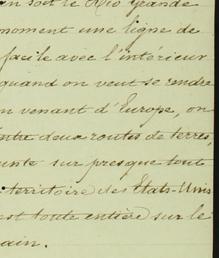 on soit le Rio Grande
moment une ligne de
facile avec l'intérieur
quand on veut se rendre
en venant d'Europe, on
entre deux routes de terres,
unte sur presque tout
territoire des États-Unis
est toute entière sur le
ain.